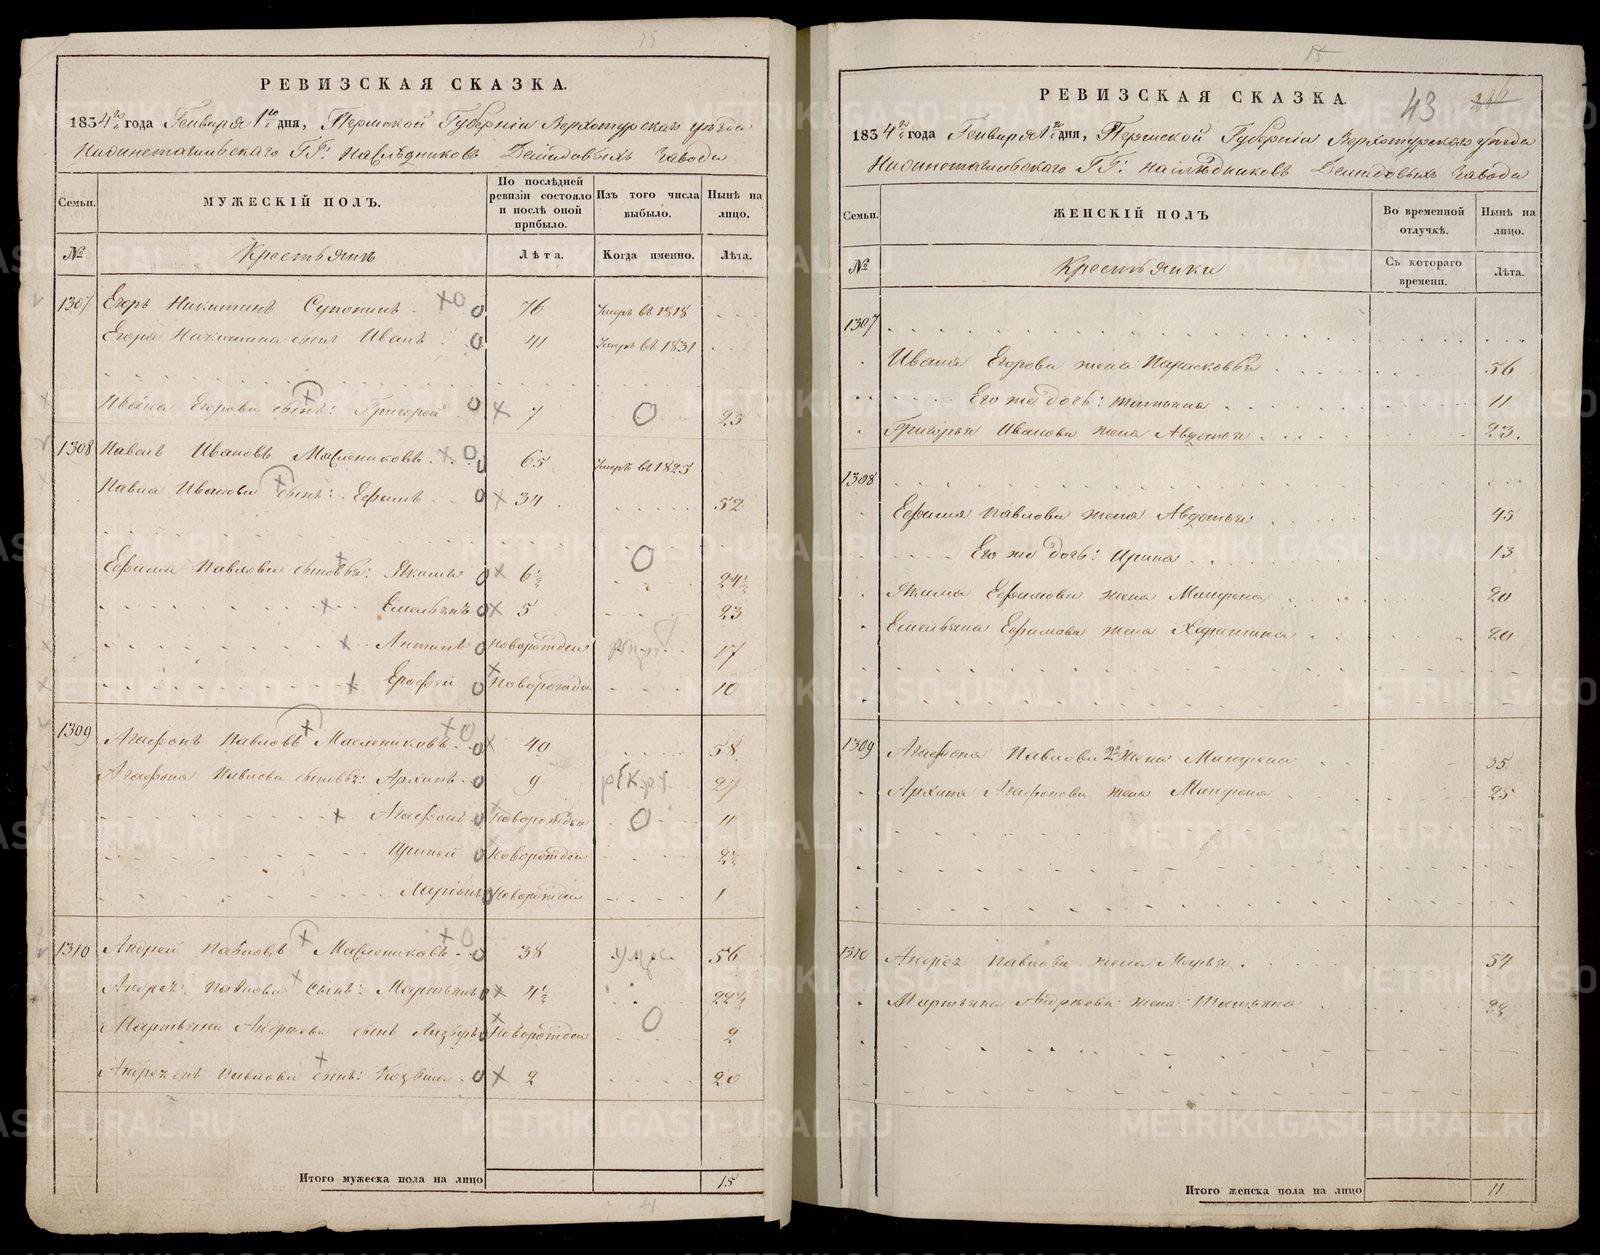 РЕВИЗСКАЯ СКАЗКА.
1834го года Генваря 1го дня, Пермской Губерніи Верхотурскаго уѣзда
Нижнетагильскаго ГГ: наслѣдниковъ Демидовыхъ завода
Семьи. МУЖЕСКІЙ ПОЛЪ. По послѣдней ревизіи состояло и послѣ оной прибыло. Изъ того числа выбыло. Нынѣ на лицо.
№ Крестьянъ Лѣта. Когда именно. Лѣта.
1307 Егоръ Никитинъ 76 Умеръ въ 1818
Егора Никитина сынъ Иванъ 41 Умеръ въ 1831
Ивана Егорова сынъ: Григорей 7 25
1308 Павелъ Ивановъ Маслениковъ 65 Умеръ въ 1825
Павла Иванова сынъ: Ефимъ 34 52
Ефима Павлова сыновья: Якимъ 6½ 24½
Емельянъ 5 23
Антипъ Новорожден 17
Ерофей Новорожден 10
1309 Агафонъ Павловъ Маслениковъ 40 58
Агафона Павлова сыновья: Архипъ 9 27
Агафонъ Новорожден 11
Новорожден
Новорожден 1
1310 Андрей Павловъ Маслениковъ 38 56
Андрея Павлова сынъ: Мартьянъ 4½ 22½
Мартьяна Андреева сынъ Новорожден 2
Павлова сынъ: Козьма 2 20
Итого мужеска пола на лицо 15
РЕВИЗСКАЯ СКАЗКА. 43
1834го года Генваря 1го дня, Пермской Губерніи Верхотурскаго уѣзда
Нижнетагильскаго ГГ: наслѣдниковъ Демидовыхъ завода
Семьи. ЖЕНСКІЙ ПОЛЪ Во временной отлучкѣ. Нынѣ на лицо.
№ Крестьянки Съ котораго времени. Лѣта.
1307
Ивана Егорова жена Парасковья 56
Его же дочь: Татьяна 11
Григорья Иванова жена Авдотья 23.
1308
Ефима Павлова жена Авдотья 45
Его же дочь: Ирина 13
Якима Ефимова жена Матрена 20
Емельяна Ефимова жена 20
1309 Агафона Павлова 2я жена Матрена 35
Архипа Агафонова жена Матрена 25
1310 Андрея Павлова жена Марья 54
Мартьяна Андреева жена: Татьяна
Итого женска пола на лицо 11
METRIKI.GASO-URAL.RU